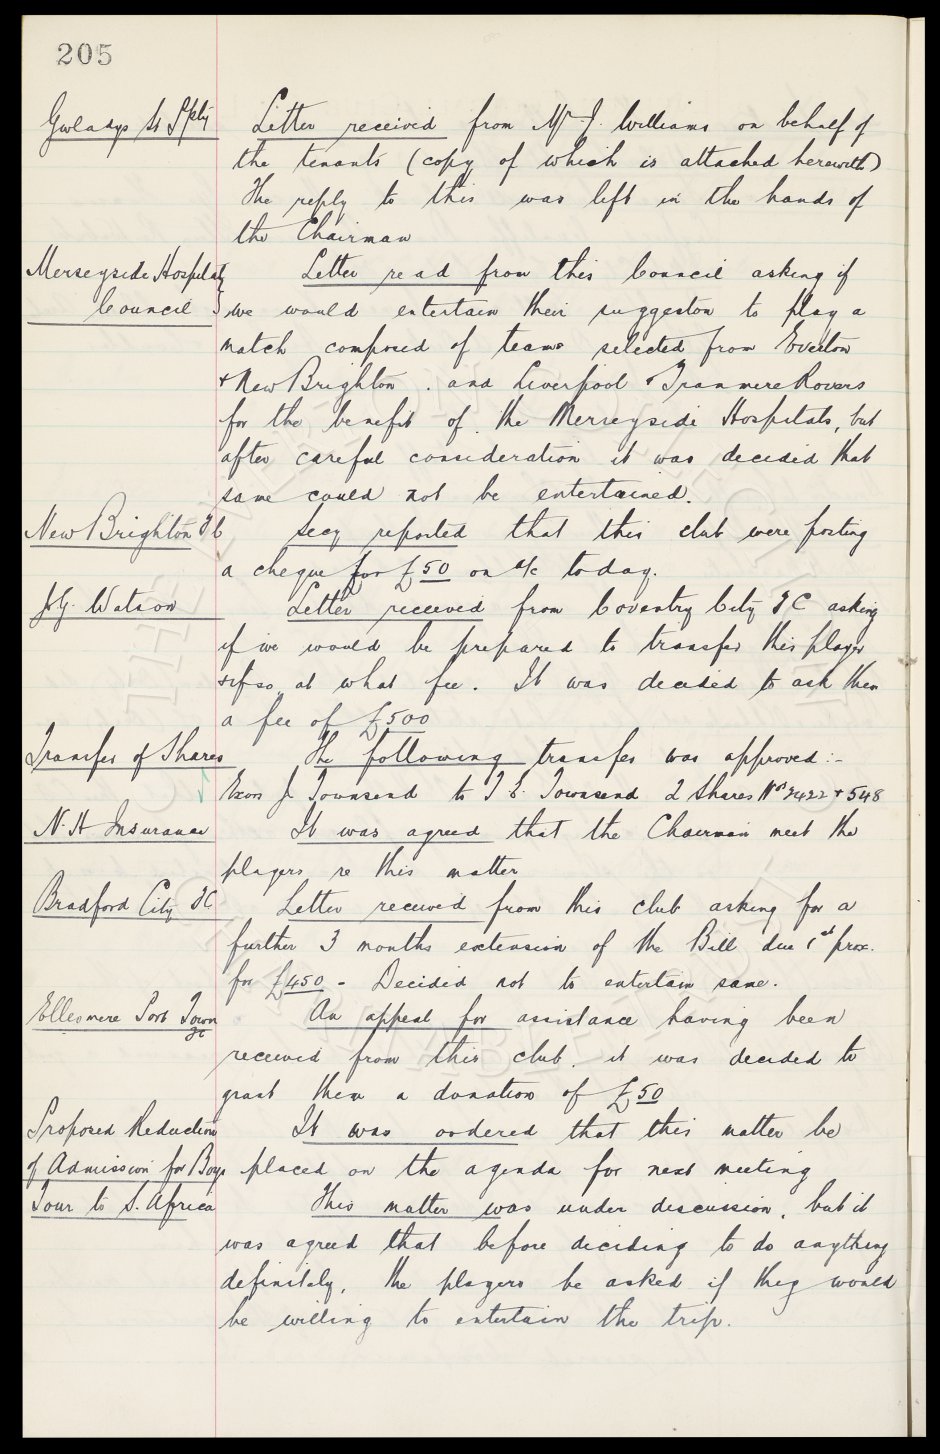 205
Gwladys St Ppty Letter received from Mr J. Williams on behalf of
the tenants (copy of which is attached herewith)
The reply to this was left in the hands of
the Chairman
Merseyside Hospitals Letter read from this Council asking if
Council we would entertain their suggeston to play a
match composed of teams selected from Everton
& New Brighton . and Liverpool & Tranmere Rovers
for the benefit of the Merseyside Hospitals, but
after careful consideration it was decided that
same could not be entertained.
New Brighton FC Secy reported that this club were posting
a cheque for £50 on a/c today.
J.G. Watson Letter received from Coventry City FC asking
if we would be prepared to transfer this player
& if so at what fee. It was decided to ask them
a fee of £500
Transfer of Shares The following transfer was approved:-
Exors J Townsend to T E. Townsend 2 Shares Nos 2422 & 548
N.H Insurance It was agreed that the Chairman meet the
players re this matter
Bradford City FC Letter received from this club asking for a
further 3 months extension of the Bill due 1st prox.
for £450 - Decided not to entertain same.
Ellesmere Port Town FC An appeal for assistance having been
received from this club. it was decided to
grant them a donation of £50
Proposed Reduction It was ordered that this matter be
of Admission for Boys placed on the agenda for next meeting
Tour to S. Africa This matter was under discussion, but it
was agreed that before deciding to do anything
definitely, the players be asked if they would
be willing to entertain the trip.